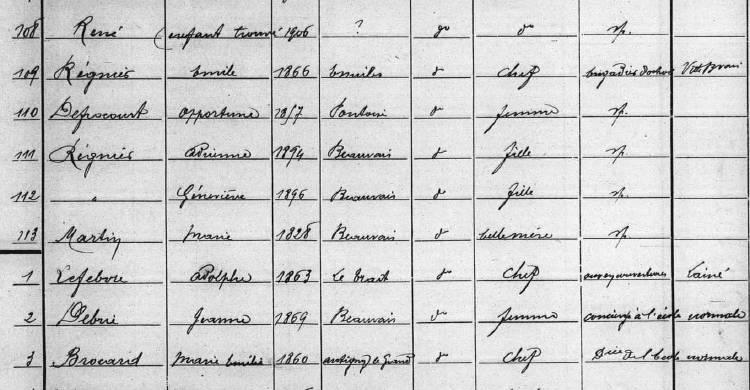 108 René (enfant trouvé 1906 ? do do sp.
109 Régnier Emile 1866 d Chef brigadier d'octroi
110 Defrocourt opportune Pontoise d femme sp.
111 Régnier Adrienne 1894 Beauvais d fille sp.
112 " Géneviève 1896 Beauvais d fille sp.
113 Martin Marie 1828 Beauvais d belle mère sp.
1 Lefebvre Adolphe 1863 Le Trait d Chef Lainé
2 Debrie Jeanne 1869 Beauvais d femme concierge à l'école normale
3 Brocard Marie Emilie 1860 d Chef Drice de l'école normale